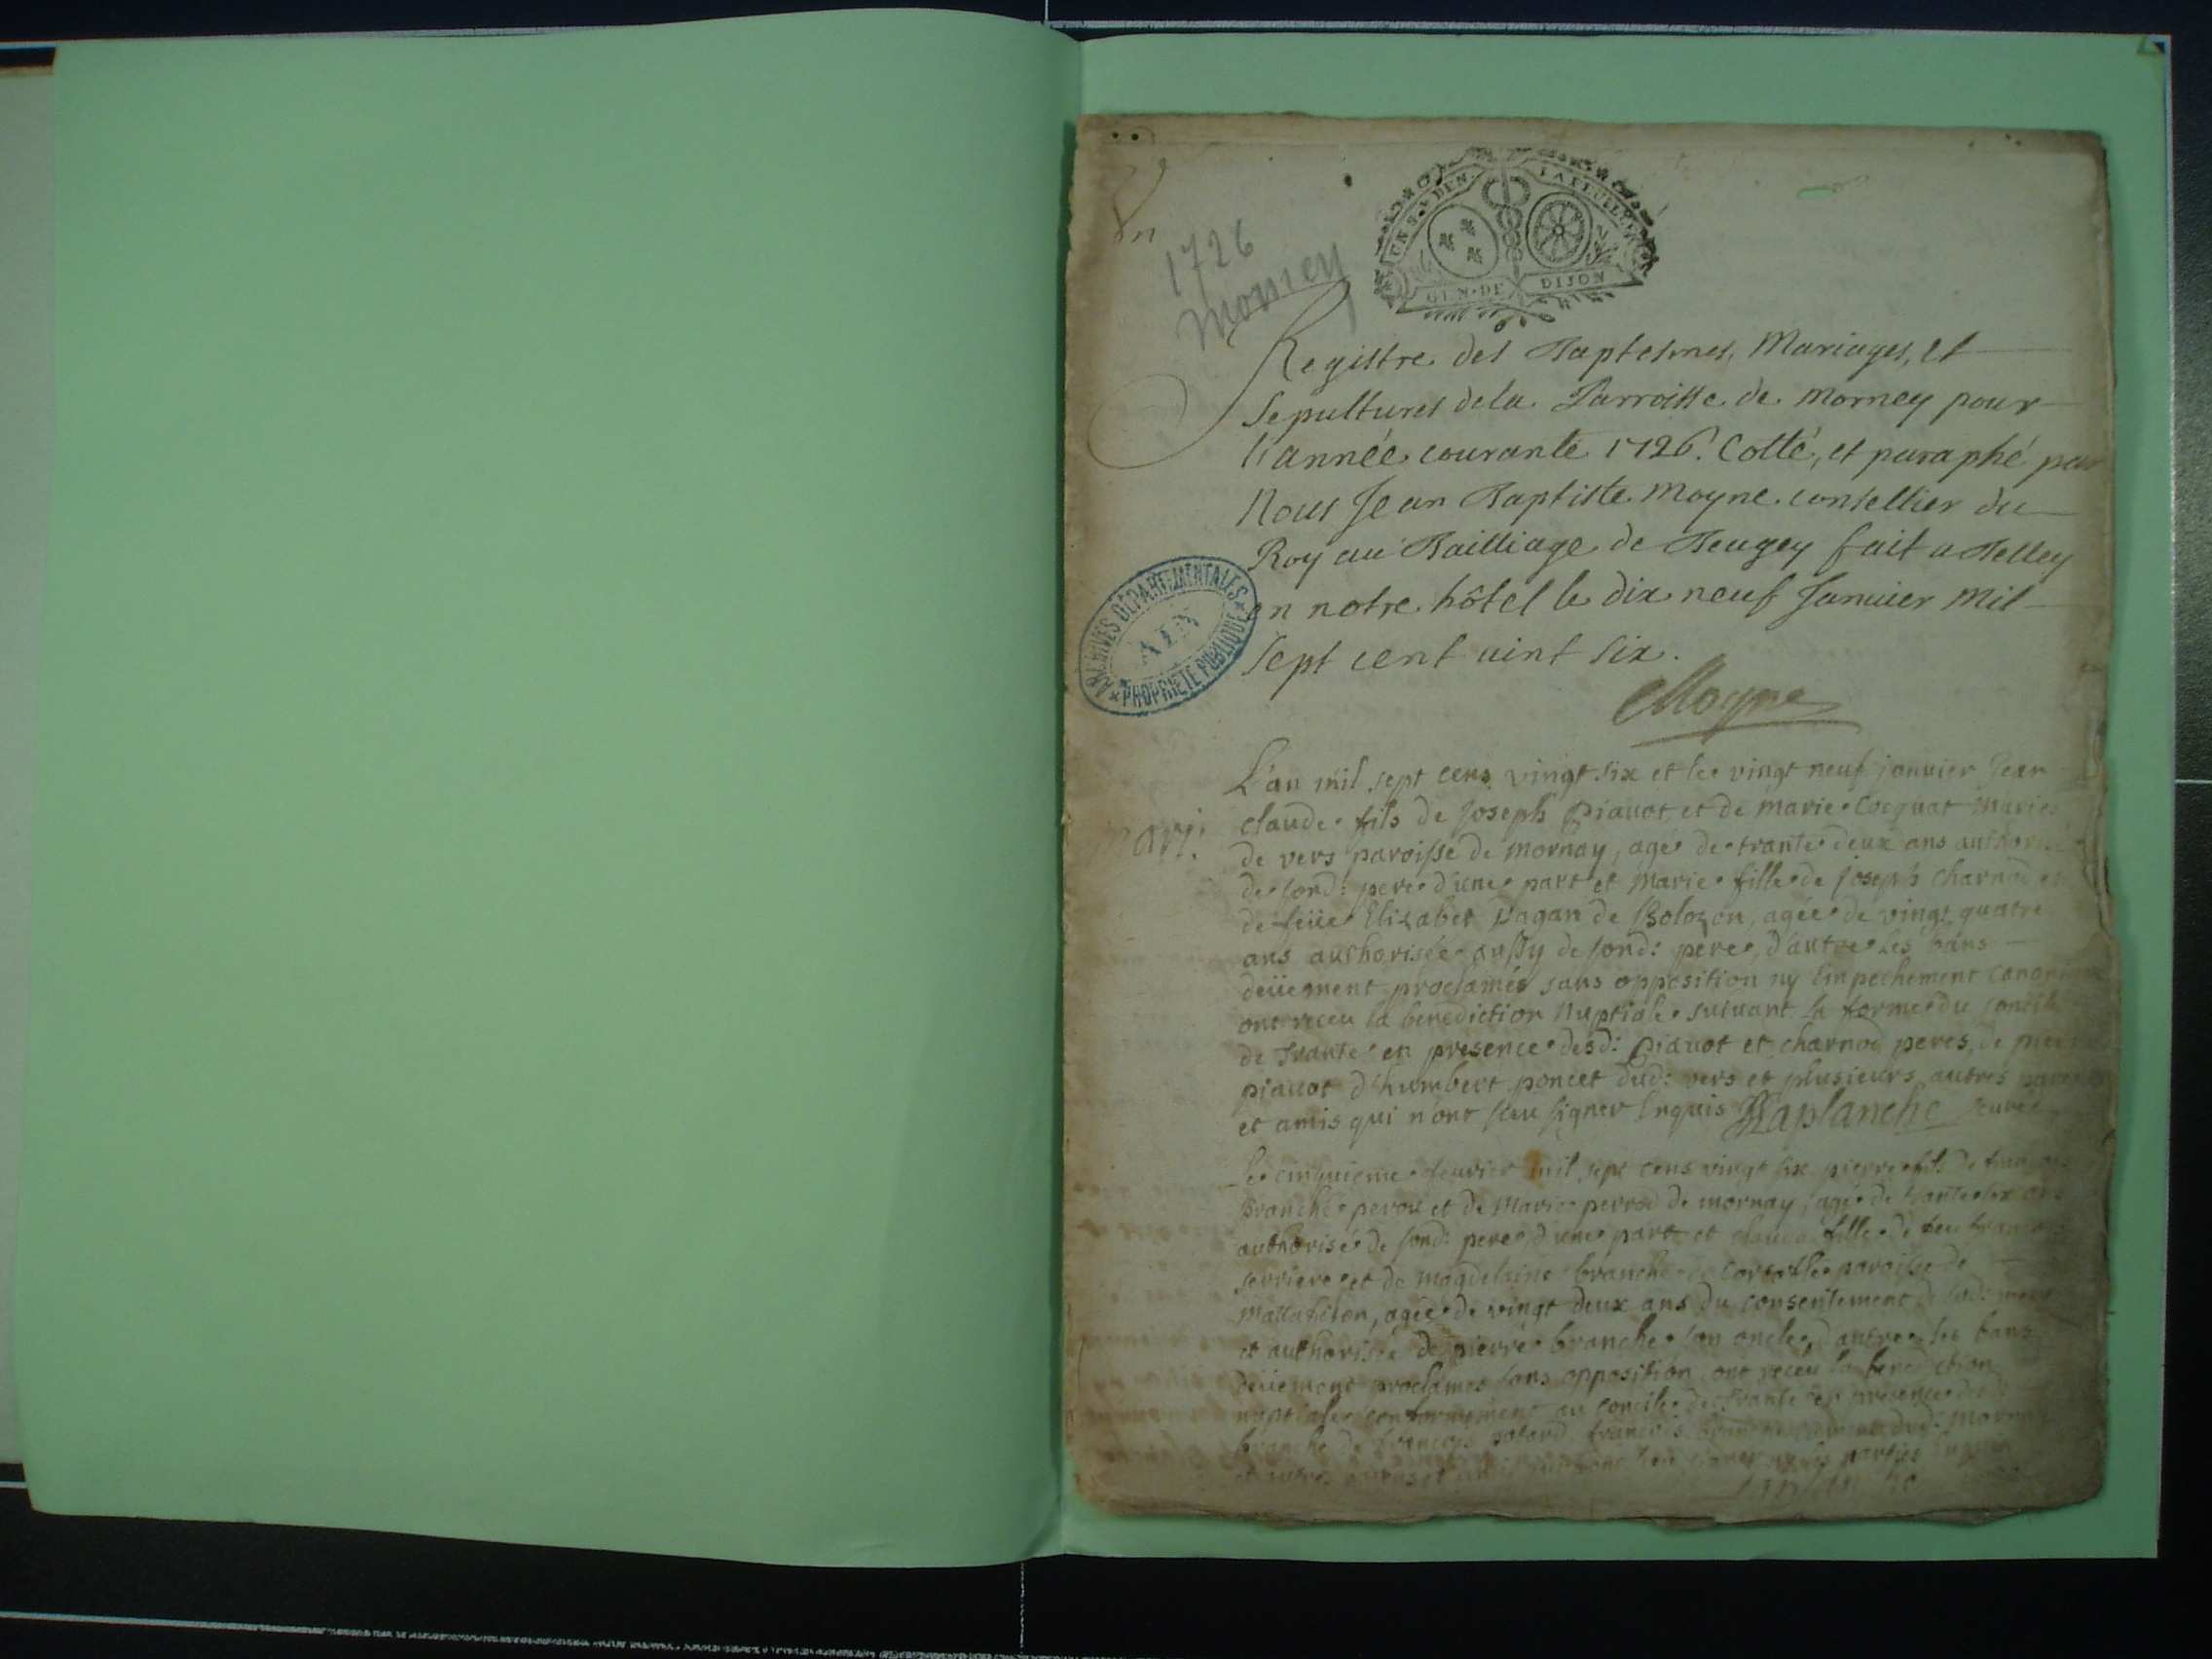 Un
1726
Morney
UN S. 4 DEN. LA FEUILLE
GEN. DE DIJON
Registre des Baptesmes, Mariages, Et
Sepultures dela Parroisse de Morney pour
l'année courante 1726. Cotté, et paraphé par
Nous Jean Baptiste Moyne conseillier du
Roy au Bailliage de Beugey fait a Belley
en notre hôtel le dix neuf Januier Mil
Sept cent uint six.
Moyne
ARCHIVES DÉPARTEMENTALES
AIN
PROPRIÉTÉ PUBLIQUE
mari.
L'an mil sept cens vingt six et le vingt neuf januier Jean
claude fils de Joseph Piauot et de Marie Cocquat Mariés
de vers paroisse de Mornay, agé de trante deux ans authorisé
de sond: pere d'une part et Marie fille de Joseph Charnod et
de feüe Elizabet Pagan de Bolozon, agée de vingt quatre
ans authorisée aussy de sond: pere, d'autre les bans
deüement proclamés sans opposition ny Empechement canonique
ont receu la benediction Nuptiale suiuant la forme du concile
de Trante en presence desd: Piauot et charnod peres, de pierre
piauot d'humbert poncet dud: vers et plusieurs autres parens
et amis qui n'ont sceu signer Enquis Raplanche curé
Le cinquieme feurier mil sept cens vingt six pierre fils de françois
Branche perou et de Marie perrod de mornay, agé de trante six ans
authorisé de sond: pere d'une part et clauda fille de feu françois
serriere et de magdelaine branche de Corcelle paroisse de
Matafelon, agée de vingt deux ans du consentement de lad: mere
et authorisée de pierre branche son oncle, d'autre les bans
deüement proclamés sans opposition ont receu la benediction
nuptiale conformement au concile de Trante en presence
branche de françois françois dud: Mornay
et autres parens et amis parties Enquis